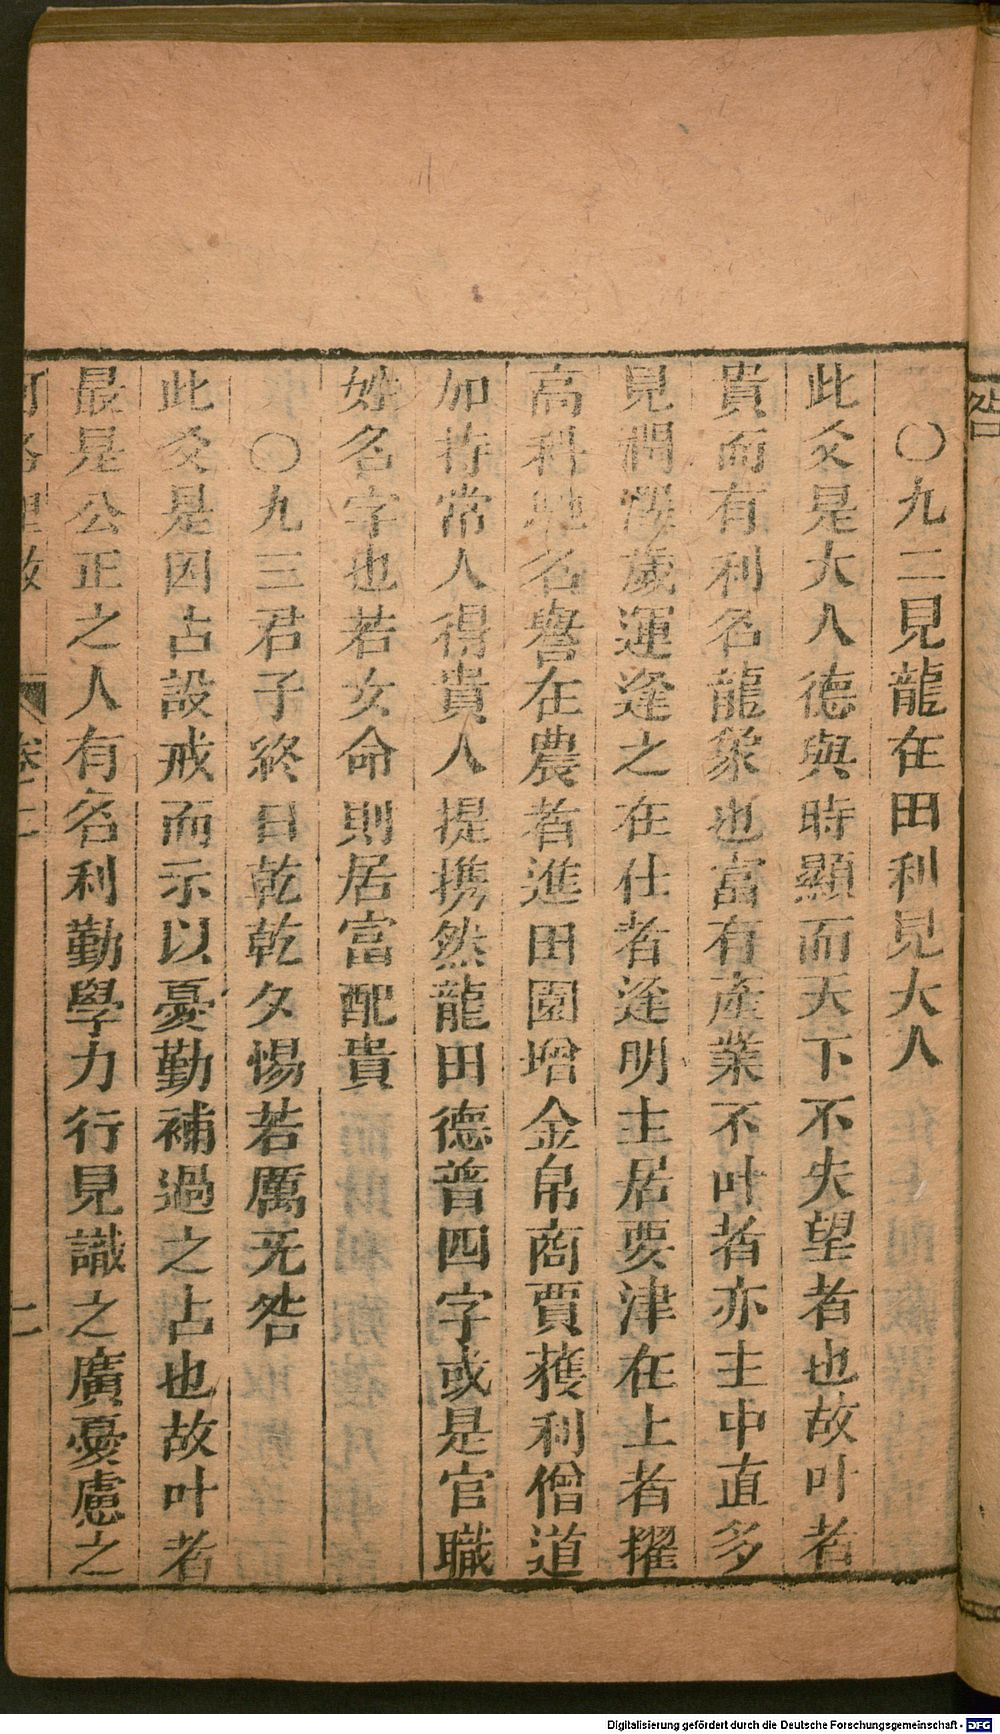 〇九二見龍在田利見大人
此爻是大人德與時顯而天下不失望者也故叶者
貴而有利名龍象也富有產業不叶者亦主中直多
見潤澤歲運逢之在仕者逢明主居要津在上者擢
高科馳名譽在農者進田園增金帛商賈獲利僧道
加持常人得貴人提携然龍田德普四字或是官職
姓名字也若女命則居富配貴
〇九三君子終日乾乾夕惕若厲无咎
此爻是因占設戒而示以憂勤補過之占也故叶者
最是公正之人有名利勤學力行見識之廣憂慮之
河洛理數
卷二
二
咎
Digitalisierung gefördert durch die Deutsche Forschungsgemeinschaft - DFG